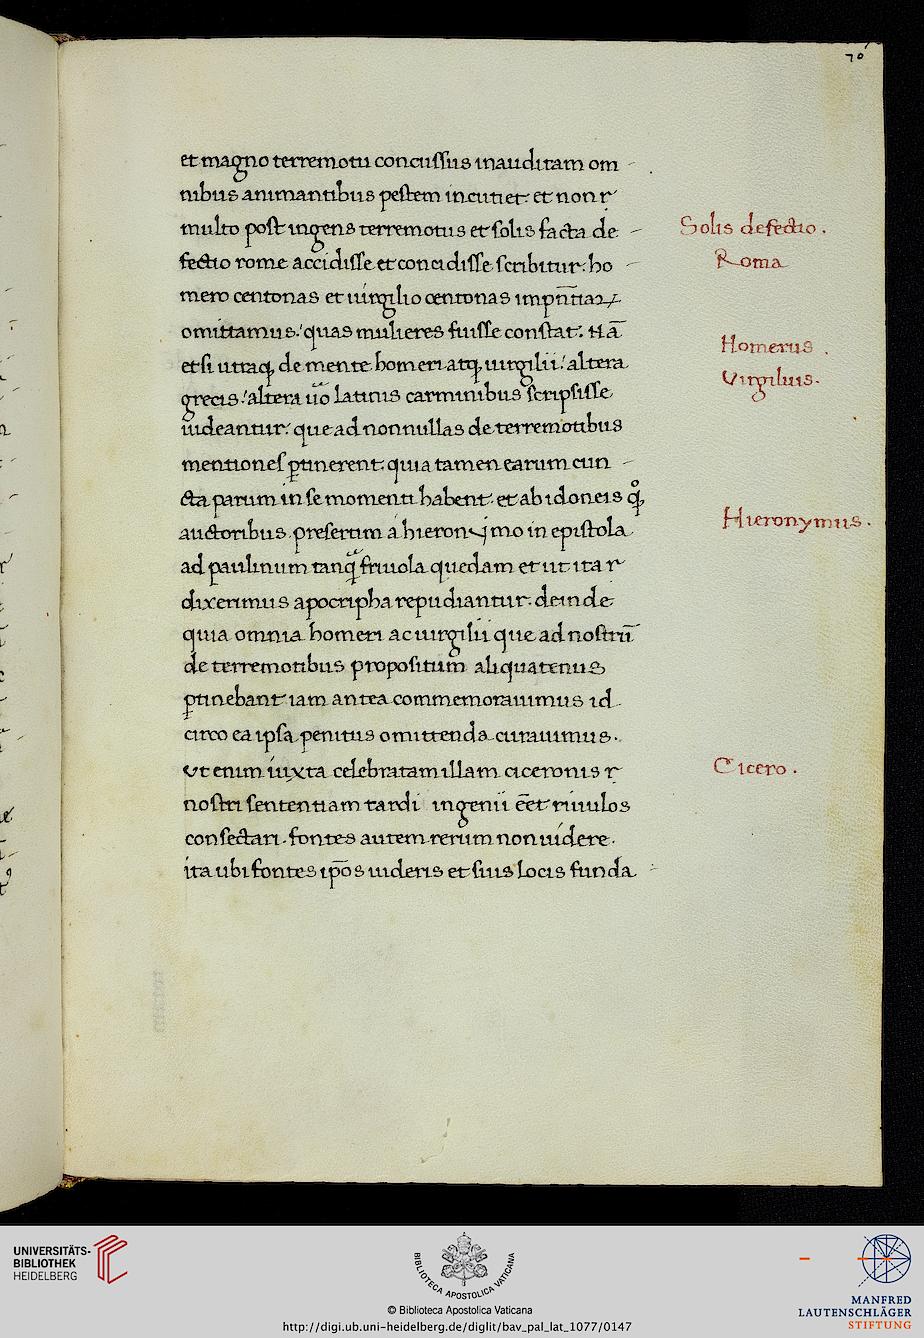 70
et magno terremotu concussus inauditam om
nibus animantibus pestem incutiet: et non r
multo post ingens terremotus et solis facta de
Solis defectio.
fectio rome accidisse et concidisse scribitur: ho
Roma
mero centonas et uirgilio centonas
omittamus: quas mulieres fuisse constat: Nā
Homerus.
etsi utraq, de mente homeri atq, uirgilii: altera
Virgilius.
grecis: altera ůo latinis carminibus scripsisse
uideantur: que ad nonnullas de terremotibus
mentiones ꝑtinerent: quia tamen earum cun
cta parum in se momenti habent: et ab idoneis qͦꝫ
Hieronymus.
auctoribus presertim a hieronymo in epistola
ad paulinum tanq̃ friuola quedam et ut ita r
dixerimus apocripha repudiantur: deinde
quia omnia homeri ac uirgilii que ad nostrū
de terremotibus propositum aliquatenus
ꝑtinebant iam antea commemorauimus id
circo ea ipsa penitus omittenda curauimus.
Cicero.
Vt enim iuxta celebratam illam ciceronis r
nostri sententiam tardi ingenii eēt riuulos
consectari. fontes autem rerum non uidere.
ita ubi fontes ip̄os uideris et suis locis funda
UNIVERSITÄTS-
BIBLIOTHEK
HEIDELBERG
BIBLIOTECA APOSTOLICA VATICANA
© Biblioteca Apostolica Vaticana
http://digi.ub.uni-heidelberg.de/diglit/bav_pal_lat_1077/0147
MANFRED
LAUTENSCHLÄGER
STIFTUNG